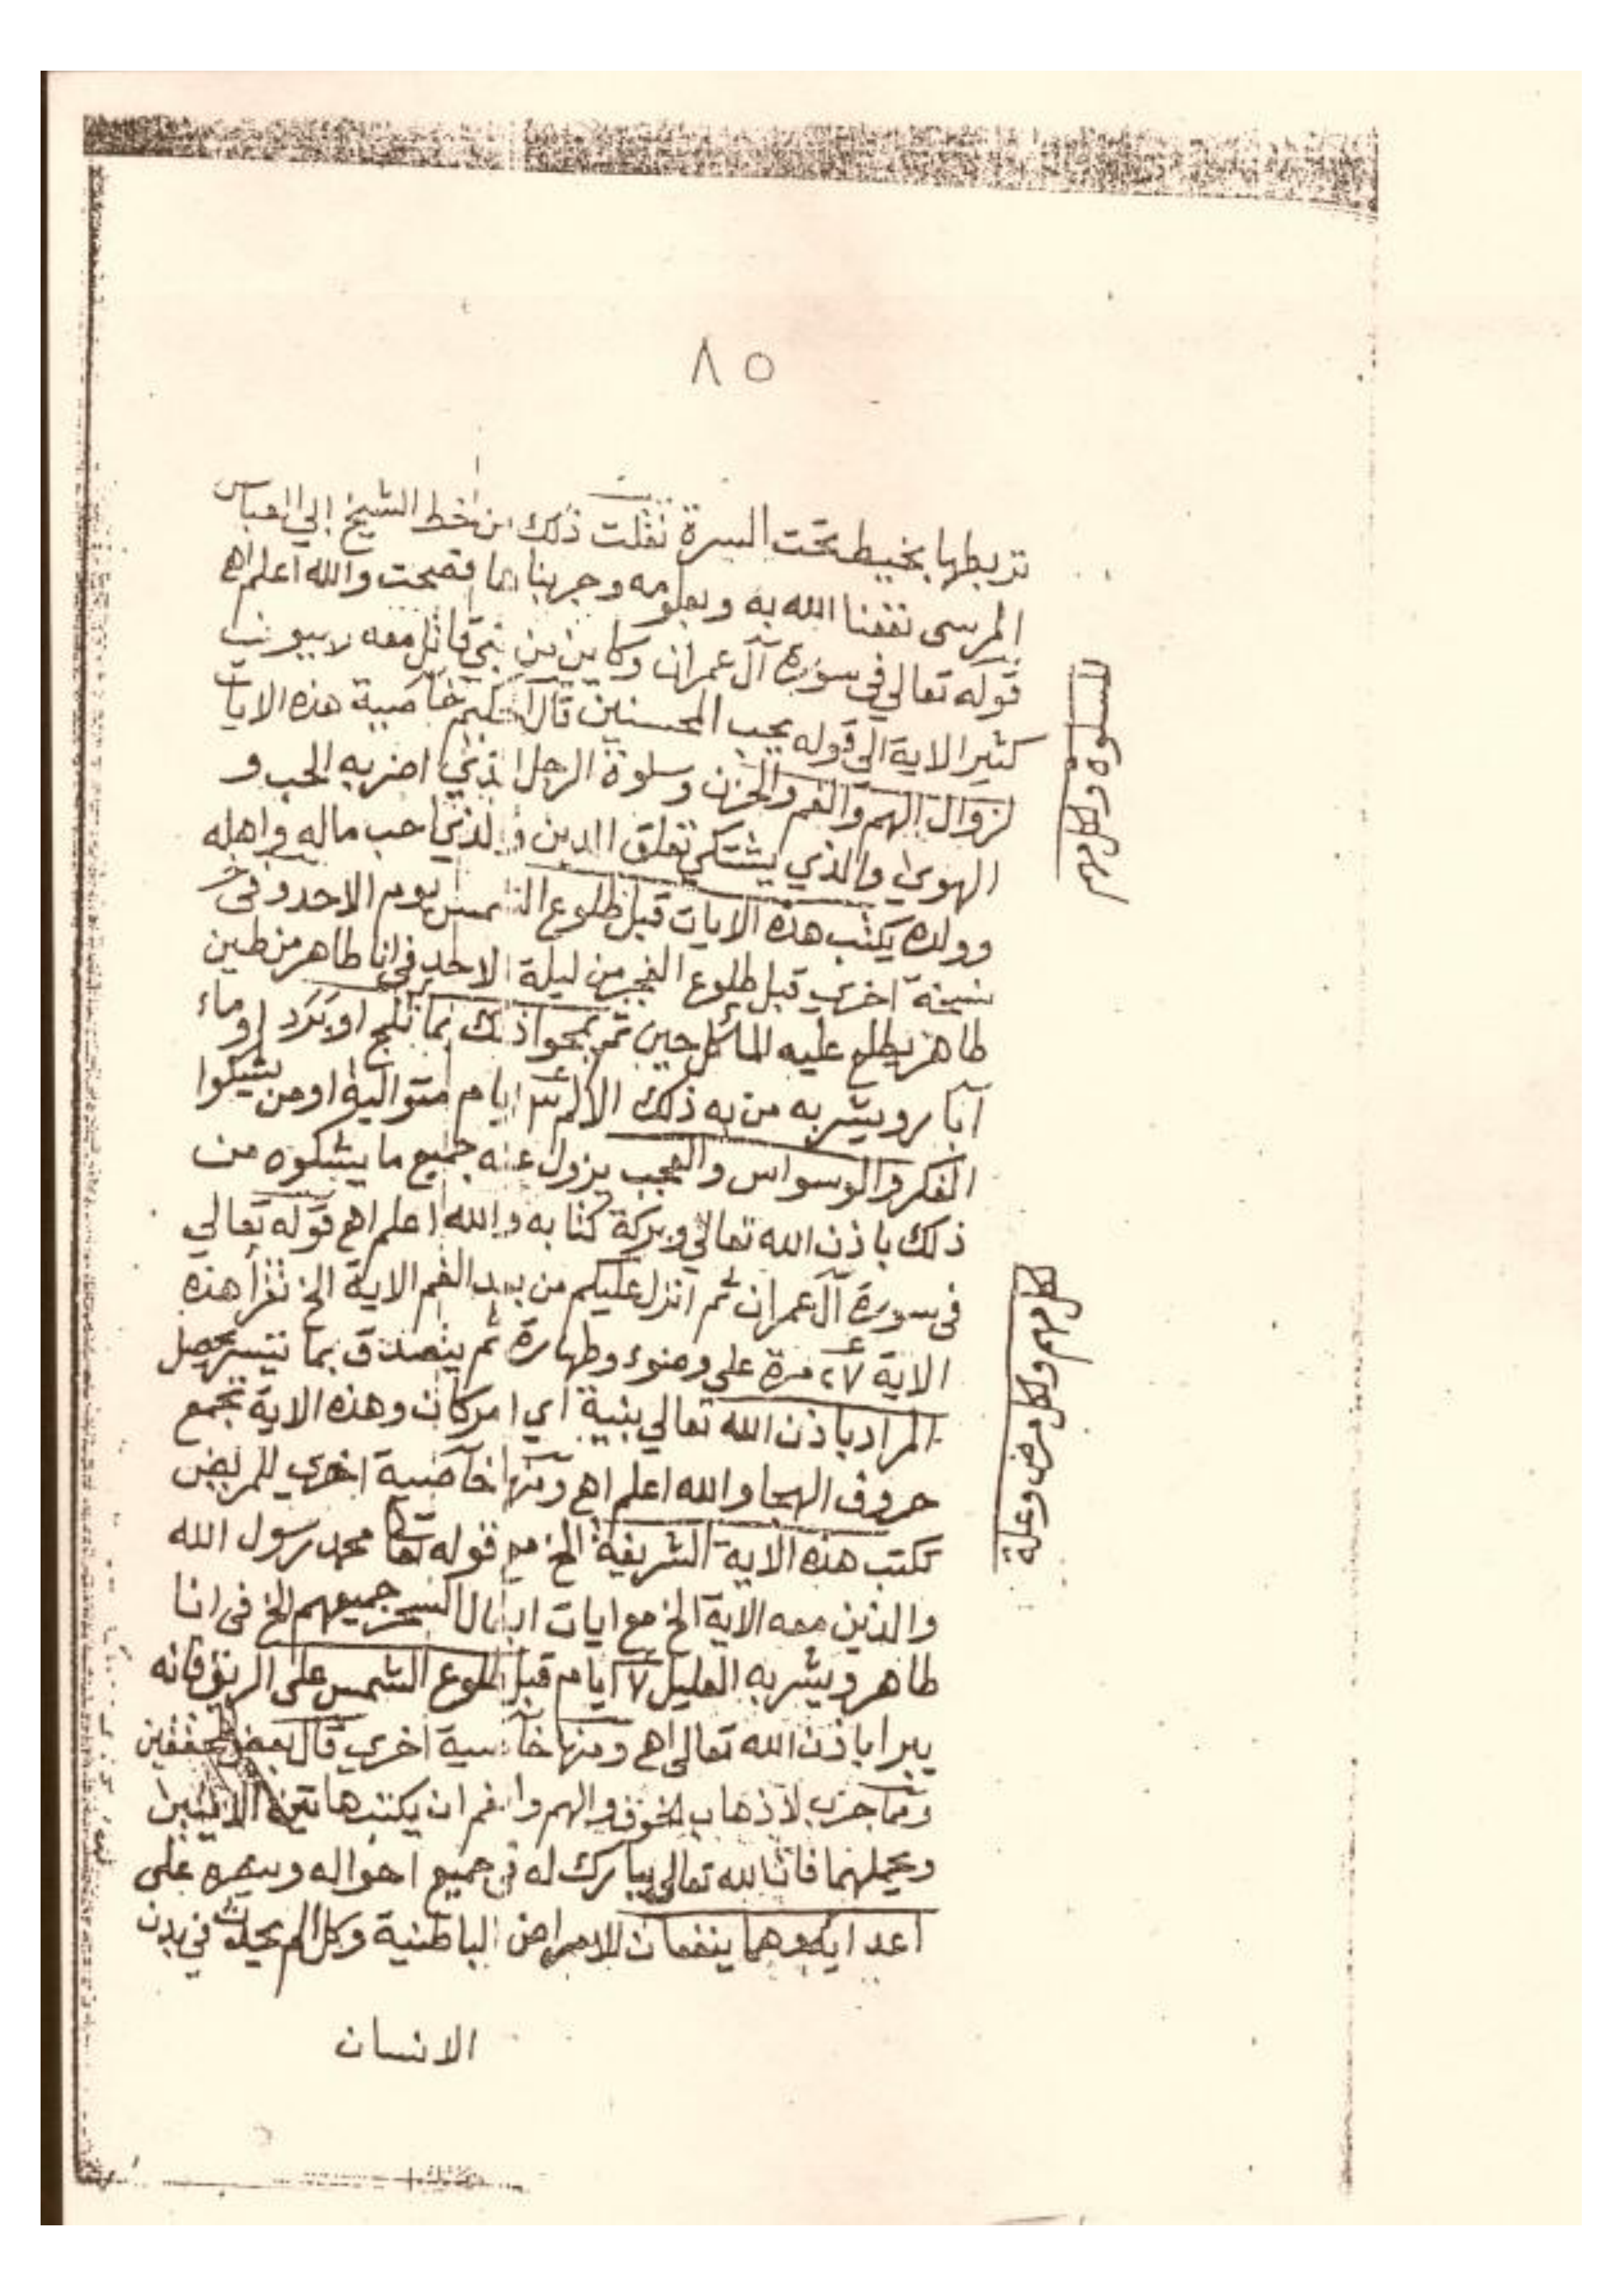 ٨٥
تربطها بخيط تحت السرة نقلت ذلك من خط الشيخ ابي العباس
المرسي نفعنا الله به وبعلومه وجربناها فصحت والله أعلم اهـ
قوله تعالي في سورة آل عمران وكاين من نبي قاتل معه ربيون
كثير الاية الى قوله يحب المحسنين قال الحكيم خاصية هذه الايات
لزوال الهم والغم والحزن وسلوة الرجل الذي اضر به الحب و
الهوي والذي يشتكي تعلق الدين والذي احب ماله واهله
وولده يكتب هذه الايات قبل طلوع الشمس يوم الاحد وفي
نسخة اخري قبل طلوع الفجر من ليلة الاحد في انا طاهر من طين
طاهر يطلع عليه للماكل حين ثم يمحوا ذلك بما ثلج او برد او ماء
آبار ويشربه من به ذلك الالم ٣ ايام متوالية او من يشكوا
الفكر والوسواس والعجب يزول عنه جميع ما يشكوه من
ذلك باذن الله تعالي وبركة كتابه والله اعلم اهـ قوله تعالي
في سورة آل عمران ثم انزل عليكم من بعد الغم الاية الخ تقرأ هذه
الاية ٢٧ مرة علي وضوء وطهارة ثم يتصدق بما تيسر يحصل
المراد باذن الله تعالي بنية أي امر كان وهذه الاية تجمع
حروف الهجا والله اعلم اهـ ومنها خاصية اخري للمريض
تكتب هذه الاية الشريفة الخ مع قوله تعا محمد رسول الله
والذين معه الاية الخ مع ايات ابطال السحر جميعهم الخ في انا
طاهر ويشربه العليل ٧ ايام قبل طلوع الشمس على الريق فانه
يبرا باذن الله تعالى اهـ ومنها خاصية اخري قال بعض المحققين
ومما جرب لاذهاب الخوف والهم والغم ان يكتب هاتين الايتين
ويحملهما فان الله تعالي يبارك له في جميع احواله وينصره على
اعدايه وهما ينفعان للامراض الباطنية وكل الم يحدث في بدن
الانسان
للسلوة ولكل مهم
لكل مهم ولكل مرض وعلة